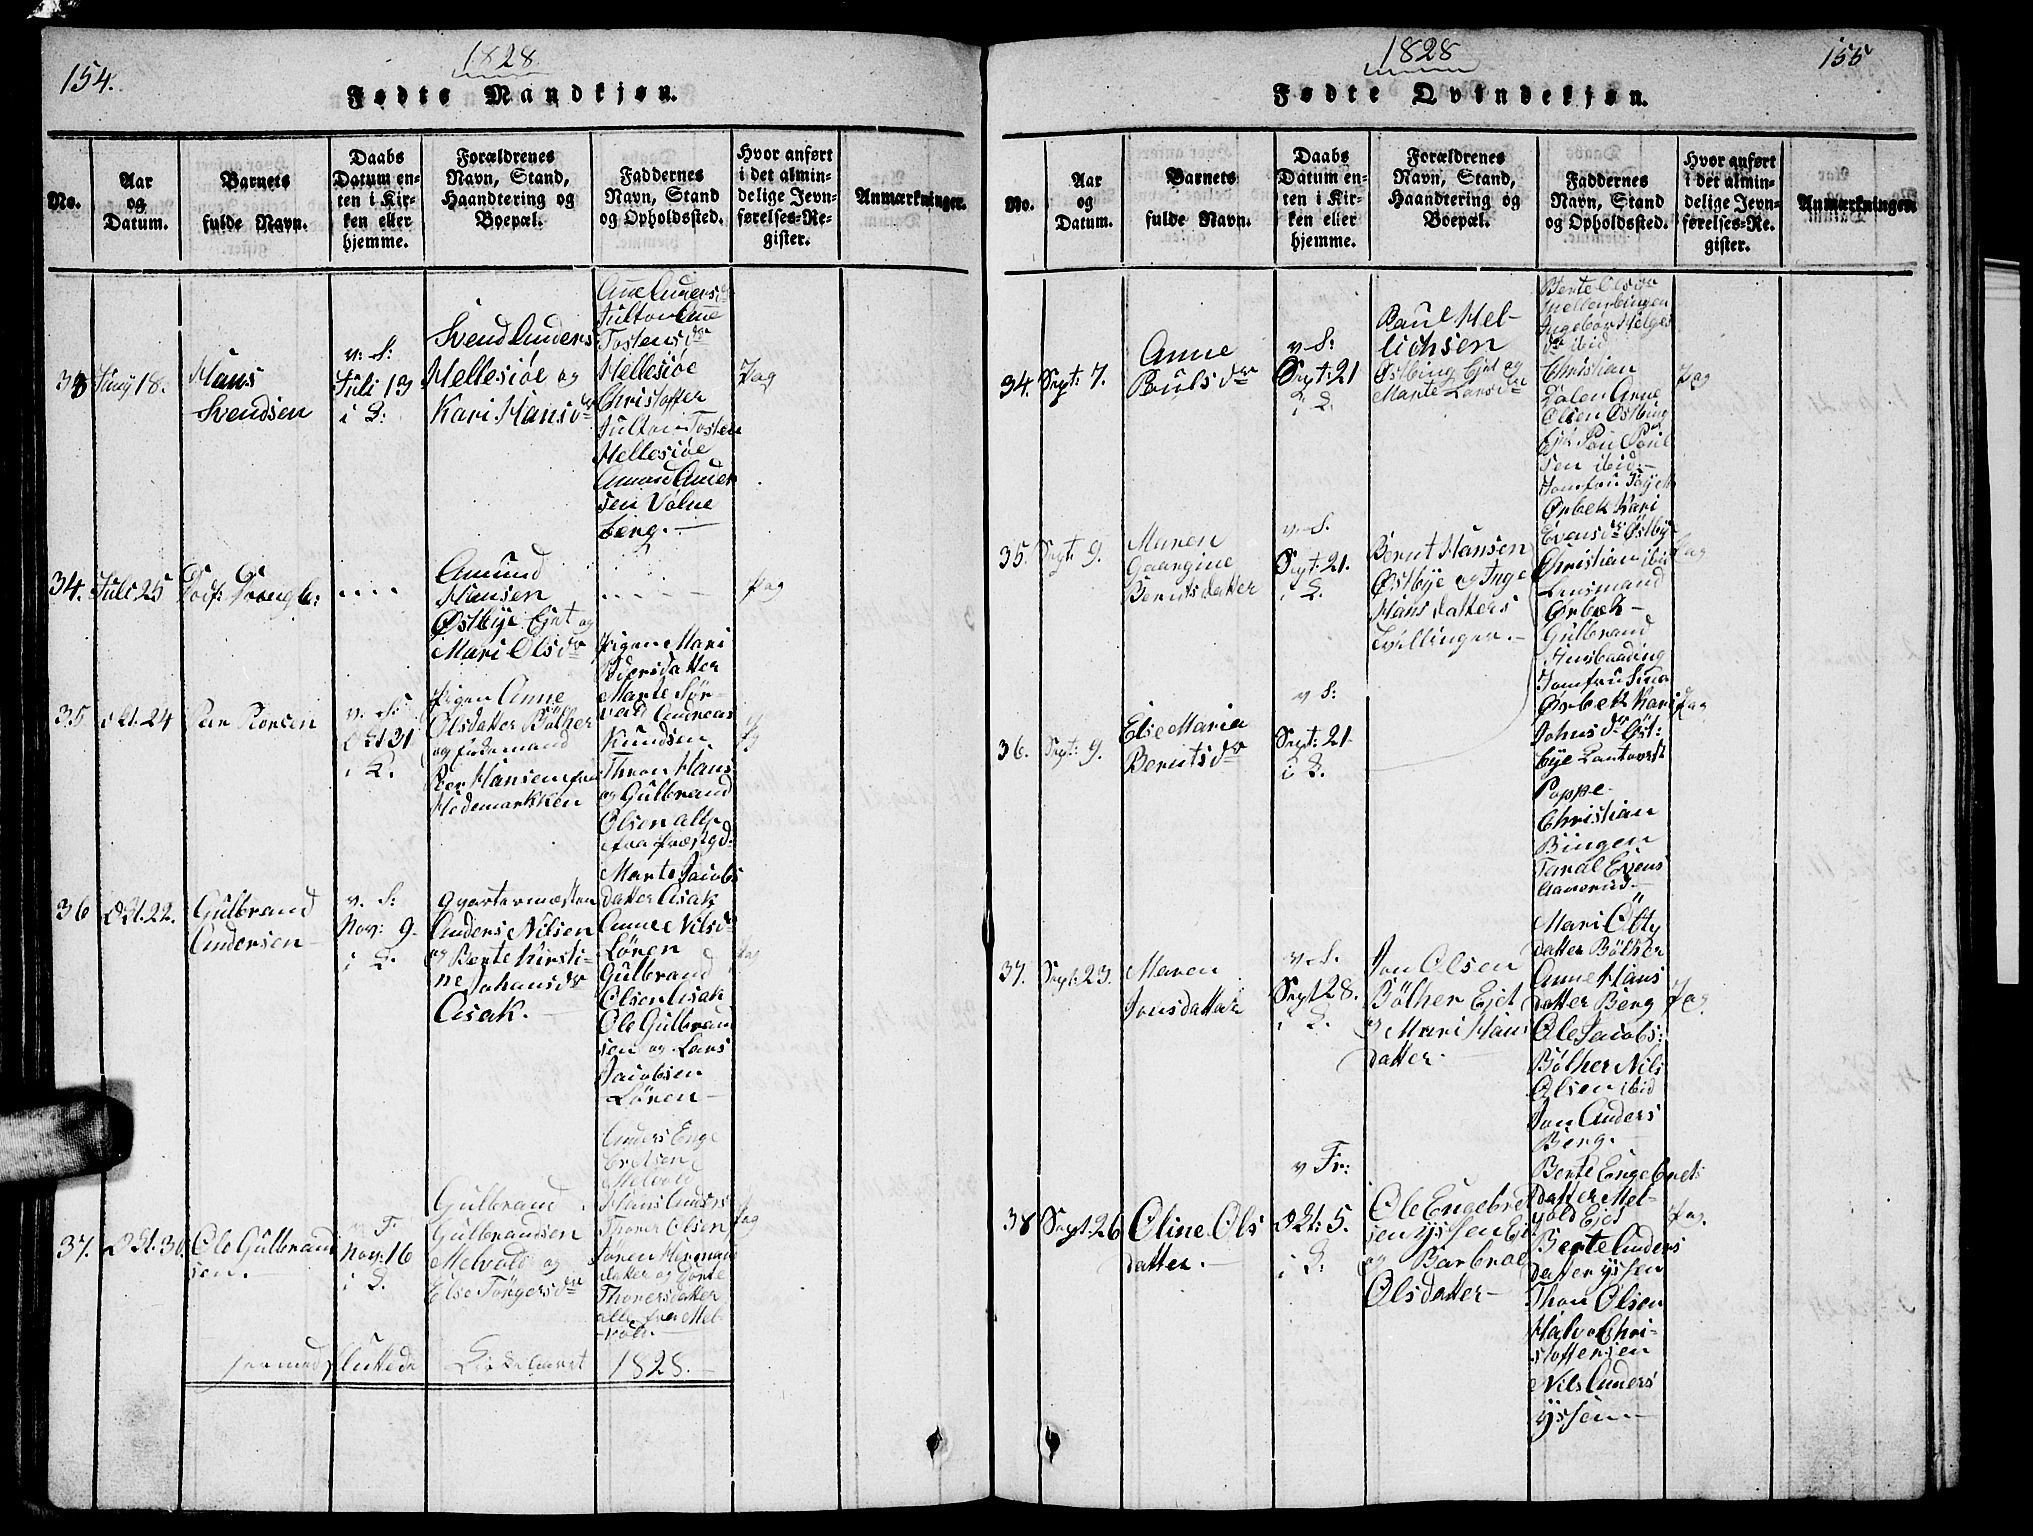 154.
1828
Fødte Mandkjøn.
No.
Aar
og
Datum.
Barnets
fulde Navn.
Daabs
Datum en-
ten i Kir-
ken eller
hjemme.
Forældrenes
Navn, Stand,
Haandtering og
Boepæl.
Faddernes
Navn, Stand
og Opholdssted.
Hvor anført
i det almin-
delige Jevn-
førelses-Re-
gister.
Anmærkninger.
33
Juny 18.
Hans
Svendsen
v: S:
Juli 13
i D:
Svend Anders
Hellesiøe og
Kari Hansdr
Anne Andersdr
Tostensdr
Hellesiøe
Christoffer
Tosten
Hellesiøe
Amund Ander
sen Valne
berg.
Jag
34.
Juli 25
Amund
Hansen
Østbye Ejet og
Mari Olsdr
Jag
35
Okt. 24
v. S:
Okt 31
i D.
Pigen Anne
Olsdatter Bölher
og
Peer Hansen fra
Hedemarkken
Pigen Mari
Marte Sör-
Andreas
Knudsen
Thron Hans
og Gulbrand
Olsen alle
fra
36
Okt. 22.
Gulbrand
Andersen
v. S:
Nov: 9
i D.
Qvartermesten
Anders Nilsen
og Berte Kirsti-
ne Johansdr
Aisak.
Marte Jacobs
datter Aisak
Anne Nilsdr
Lören
Gulbrand
Olsen Aisak
Ole Gulbran
sen og Lars
Jacobsen
Lören
Jag
37.
Okt. 30
Ole Gulbran
sen.
v F
Nov: 16
i D.
Gulbrand
Gulbrandsen
Melvold og
Else Törgersdr
Anders Enge
bretsen
Melvold
Hans Anders
Thorer Olsen
Joren Herman
datter og Dorte
Thorersdatter
alle fra Mel-
vold.
Jag
sluttede
Kirkeaaret
1828.
155
1828
Fødte Qvindekjøn.
No.
Aar
og
Datum.
Barnets
fulde Navn.
Daabs
Datum en-
ten i Kir-
ken eller
hjemme.
Forældrenes
Navn, Stand,
Haandtering og
Boepæl.
Faddernes
Navn, Stand
og Opholdssted.
Hvor anført
i det almin-
delige Jevn-
førelses-Re-
gister.
Anmærkninger
34.
Sept: 7.
Anne
Poulsdr
v S:
Sept: 21
i D.
Poul Hel-
Østbing Ejet og
Marte Larsdr
Berte Olsdr
Mellembingen
Ingebor Helges
dr ibid
Christian
Dalen Arne
Olsen Østbing
Poul
sen ibid.
Jag
35.
Sept: 9.
Maren
Berntsdatter
v. S.
Sept: 21.
i D.
Bernt Hansen
Østbye og Inge
Hansdatters
Tvillinger.
Jomfru
Ørbek Kari
Evensdr Østbye
Christian ibid
Lensmand
Ørbek
Gulbrand
Jag
36.
Sept: 9.
Else Maria
Berntsdr
v S:
Sept: 21
i D.
Jomfru Lina
Ørbek Kari
Johnsdr Øst:
bye
Poppe
Christian
Bingen
Evens
Aamerud.
Jag
37.
Sept. 23.
Maren
Jonsdatter
v. S.
Sept 28.
i D.
Jon Olsen
Bölher Ejet
og Mari Hans
datter
Mari
datter Bölher
Anne Hans
datter Berg
Ole Jacobs:
Bölher Nils
Olsen ibid
Jon Anders
Berg.
Jag
38
Sept. 26
Oline Ols
datter.
v Fr:
Okt: 5.
i D.
Ole Engebret
sen Yssen Ejt
og Barbroe
Olsdatter
Berte Engebret:
datter Mel-
vold Ejet
Berte Anders
datter Yssen
Thon Olsen
Halvor Chri-
stoffersen
Nils Anders
Yssen
Jag